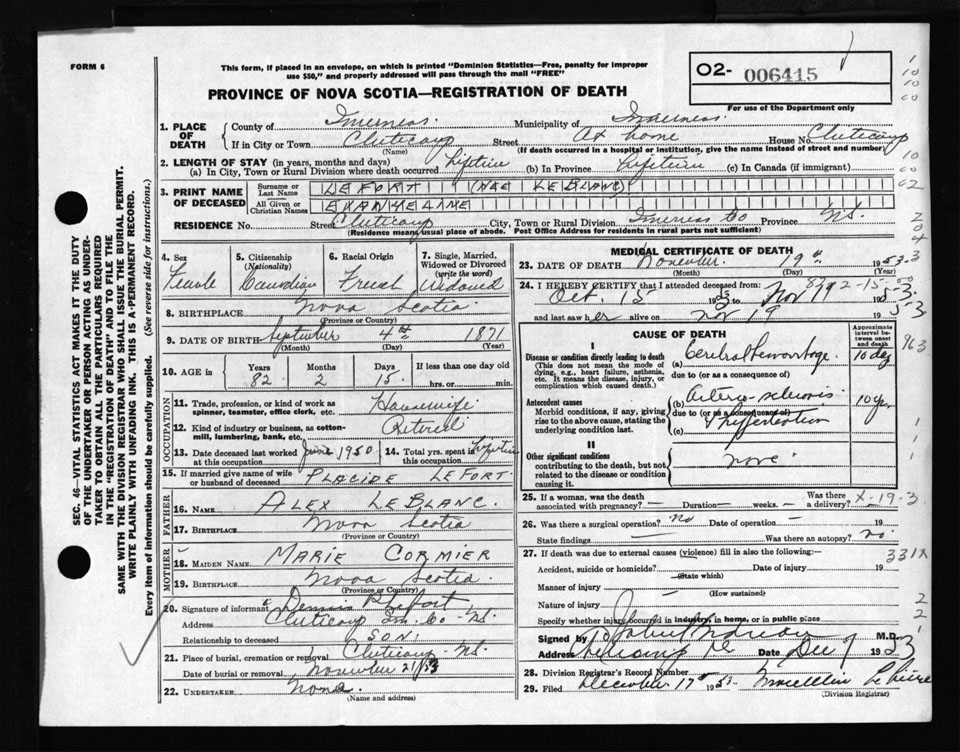 FORM 6
This form, if placed in an envelope, on which is printed "Dominion Statistics—Free, penalty for improper
use $50," and properly addressed will pass through the mail "FREE"
O2- 006415
For use of the Department only
PROVINCE OF NOVA SCOTIA—REGISTRATION OF DEATH
1. PLACE OF DEATH County of Inverness Municipality of Inverness
If in City or Town Cheticamp Street At home House No. Cheticamp
(Name) (If death occurred in a hospital or institution, give the name instead of street and number)
2. LENGTH OF STAY (in years, months and days)
(a) In City, Town or Rural Division where death occurred lifetime (b) In Province lifetime (c) In Canada (if immigrant)
3. PRINT NAME OF DECEASED Surname or Last Name LEFORT (NEE LEBLANC)
All Given or Christian Names EVANGELINE
RESIDENCE No. Street Cheticamp City, Town or Rural Division Inverness Co Province N.S.
(Residence means usual place of abode. Post Office Address for residents in rural parts not sufficient)
4. Sex Female
5. Citizenship (Nationality) Canadian
6. Racial Origin French
7. Single, Married, Widowed or Divorced (write the word) Widowed
8. Birthplace Nova Scotia
(Province or Country)
9. DATE OF BIRTH September 4th 1871
(Month) (Day) (Year)
10. AGE in Years 82 Months 2 Days 15 If less than one day old
hrs. or min.
OCCUPATION
11. Trade, profession, or kind of work as spinner, teamster, office clerk, etc. Housewife
12. Kind of industry or business, as cotton-mill, lumbering, bank, etc. Retired
13. Date deceased last worked at this occupation June 1950 14. Total yrs. spent in this occupation lifetime
15. If married give name of wife or husband of deceased PLACIDE LEFORT
FATHER
16. Name ALEX LEBLANC.
17. Birthplace Nova Scotia
(Province or Country)
MOTHER
18. MAIDEN NAME MARIE CORMIER
19. Birthplace Nova Scotia
(Province or Country)
20. Signature of informant Dennis P Lefort
Address Cheticamp Inv. Co - N.S.
Relationship to deceased SON.
21. Place of burial, cremation or removal Cheticamp - N.S.
Date of burial or removal November 21/53
22. UNDERTAKER None
(Name and address)
MEDICAL CERTIFICATE OF DEATH
23. DATE OF DEATH November 19th 1953
(Month) (Day) (Year)
24. I HEREBY CERTIFY that I attended deceased from:
Oct. 15 1953 Nov 19 1953
and last saw her alive on Nov 19 1953
CAUSE OF DEATH
Approximate interval between onset and death
I
Disease or condition directly leading to death
(This does not mean the mode of dying, e.g., heart failure, asthenia, etc. It means the disease, injury, or complication which caused death.)
(a) Cerebral hemorrhage 10 days
due to (or as a consequence of)
Antecedent causes
Morbid conditions, if any, giving rise to the above cause, stating the underlying condition last.
(b) Artery-sclerosis 10 yrs
due to (or as a consequence of)
(c) Hypertention
II
Other significant conditions
contributing to the death, but not related to the disease or condition causing it.
none
25. If a woman, was the death associated with pregnancy? Duration weeks. Was there a delivery?
26. Was there a surgical operation? no Date of operation 19
State findings Was there an autopsy? no
27. If death was due to external causes (violence) fill in also the following:—
Accident, suicide or homicide? Date of injury 19
(State which)
Manner of injury
(How sustained)
Nature of injury
Specify whether injury occurred in industry, in home, or in public place
Signed by M.D.
Address Date Dec 7 1953
28. Division Registrar's Record Number
29. Filed December 17th 1953
(Division Registrar)
SEC. 46—VITAL STATISTICS ACT MAKES IT THE DUTY
OF THE UNDERTAKER OR PERSON ACTING AS UNDERTAKER TO OBTAIN ALL THE PARTICULARS REQUIRED
IN THE "REGISTRATION OF DEATH" AND TO FILE THE
SAME WITH THE DIVISION REGISTRAR WHO SHALL ISSUE THE BURIAL PERMIT.
WRITE PLAINLY WITH UNFADING INK. THIS IS A PERMANENT RECORD.
Every item of information should be carefully supplied. (See reverse side for instructions.)